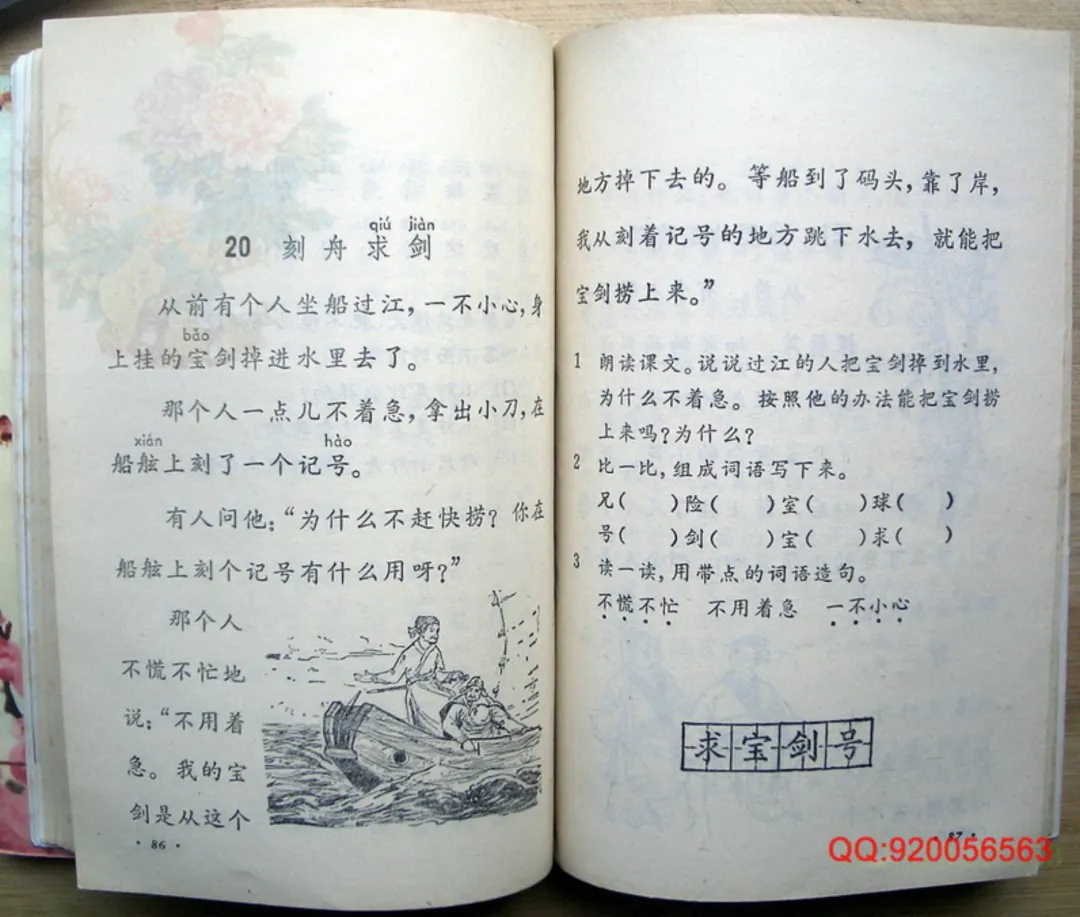 qiú jiàn
20 刻舟求剑
从前有个人坐船过江，一不小心，身
bǎo
上挂的宝剑掉进水里去了。
那个人一点儿不着急，拿出小刀，在
xián hào
船舷上刻了一个记号。
有人问他：“为什么不赶快捞？你在
船舷上刻个记号有什么用呀？”
那个人
不慌不忙地
说：“不用着
急。我的宝
剑是从这个
·86·
地方掉下去的。等船到了码头，靠了岸，
我从刻着记号的地方跳下水去，就能把
宝剑捞上来。”
1 朗读课文。说说过江的人把宝剑掉到水里，
为什么不着急。按照他的办法能把宝剑捞
上来吗？为什么？
2 比一比，组成词语写下来。
兄（ ）险（ ）室（ ）球（ ）
号（ ）剑（ ）宝（ ）求（ ）
3 读一读，用带点的词语造句。
不慌不忙 不用着急 一不小心
求宝剑号
·87·
QQ:920056563